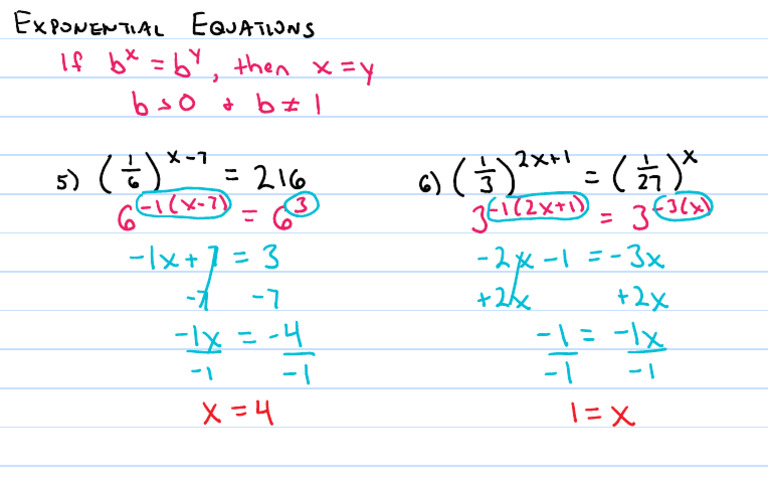 EXPONENTIAL EQUATIONS
If b^x = b^y, then x = y
b > 0 & b ≠ 1
5) (1/6)^(x-7) = 216
6^(-1(x-7)) = 6^3
-1x + 7 = 3
-7 -7
-1x = -4
-1 -1
x = 4
6) (1/3)^(2x+1) = (1/27)^x
3^(-1(2x+1)) = 3^(-3(x))
-2x - 1 = -3x
+2x +2x
-1 = -1x
-1 -1
1 = x